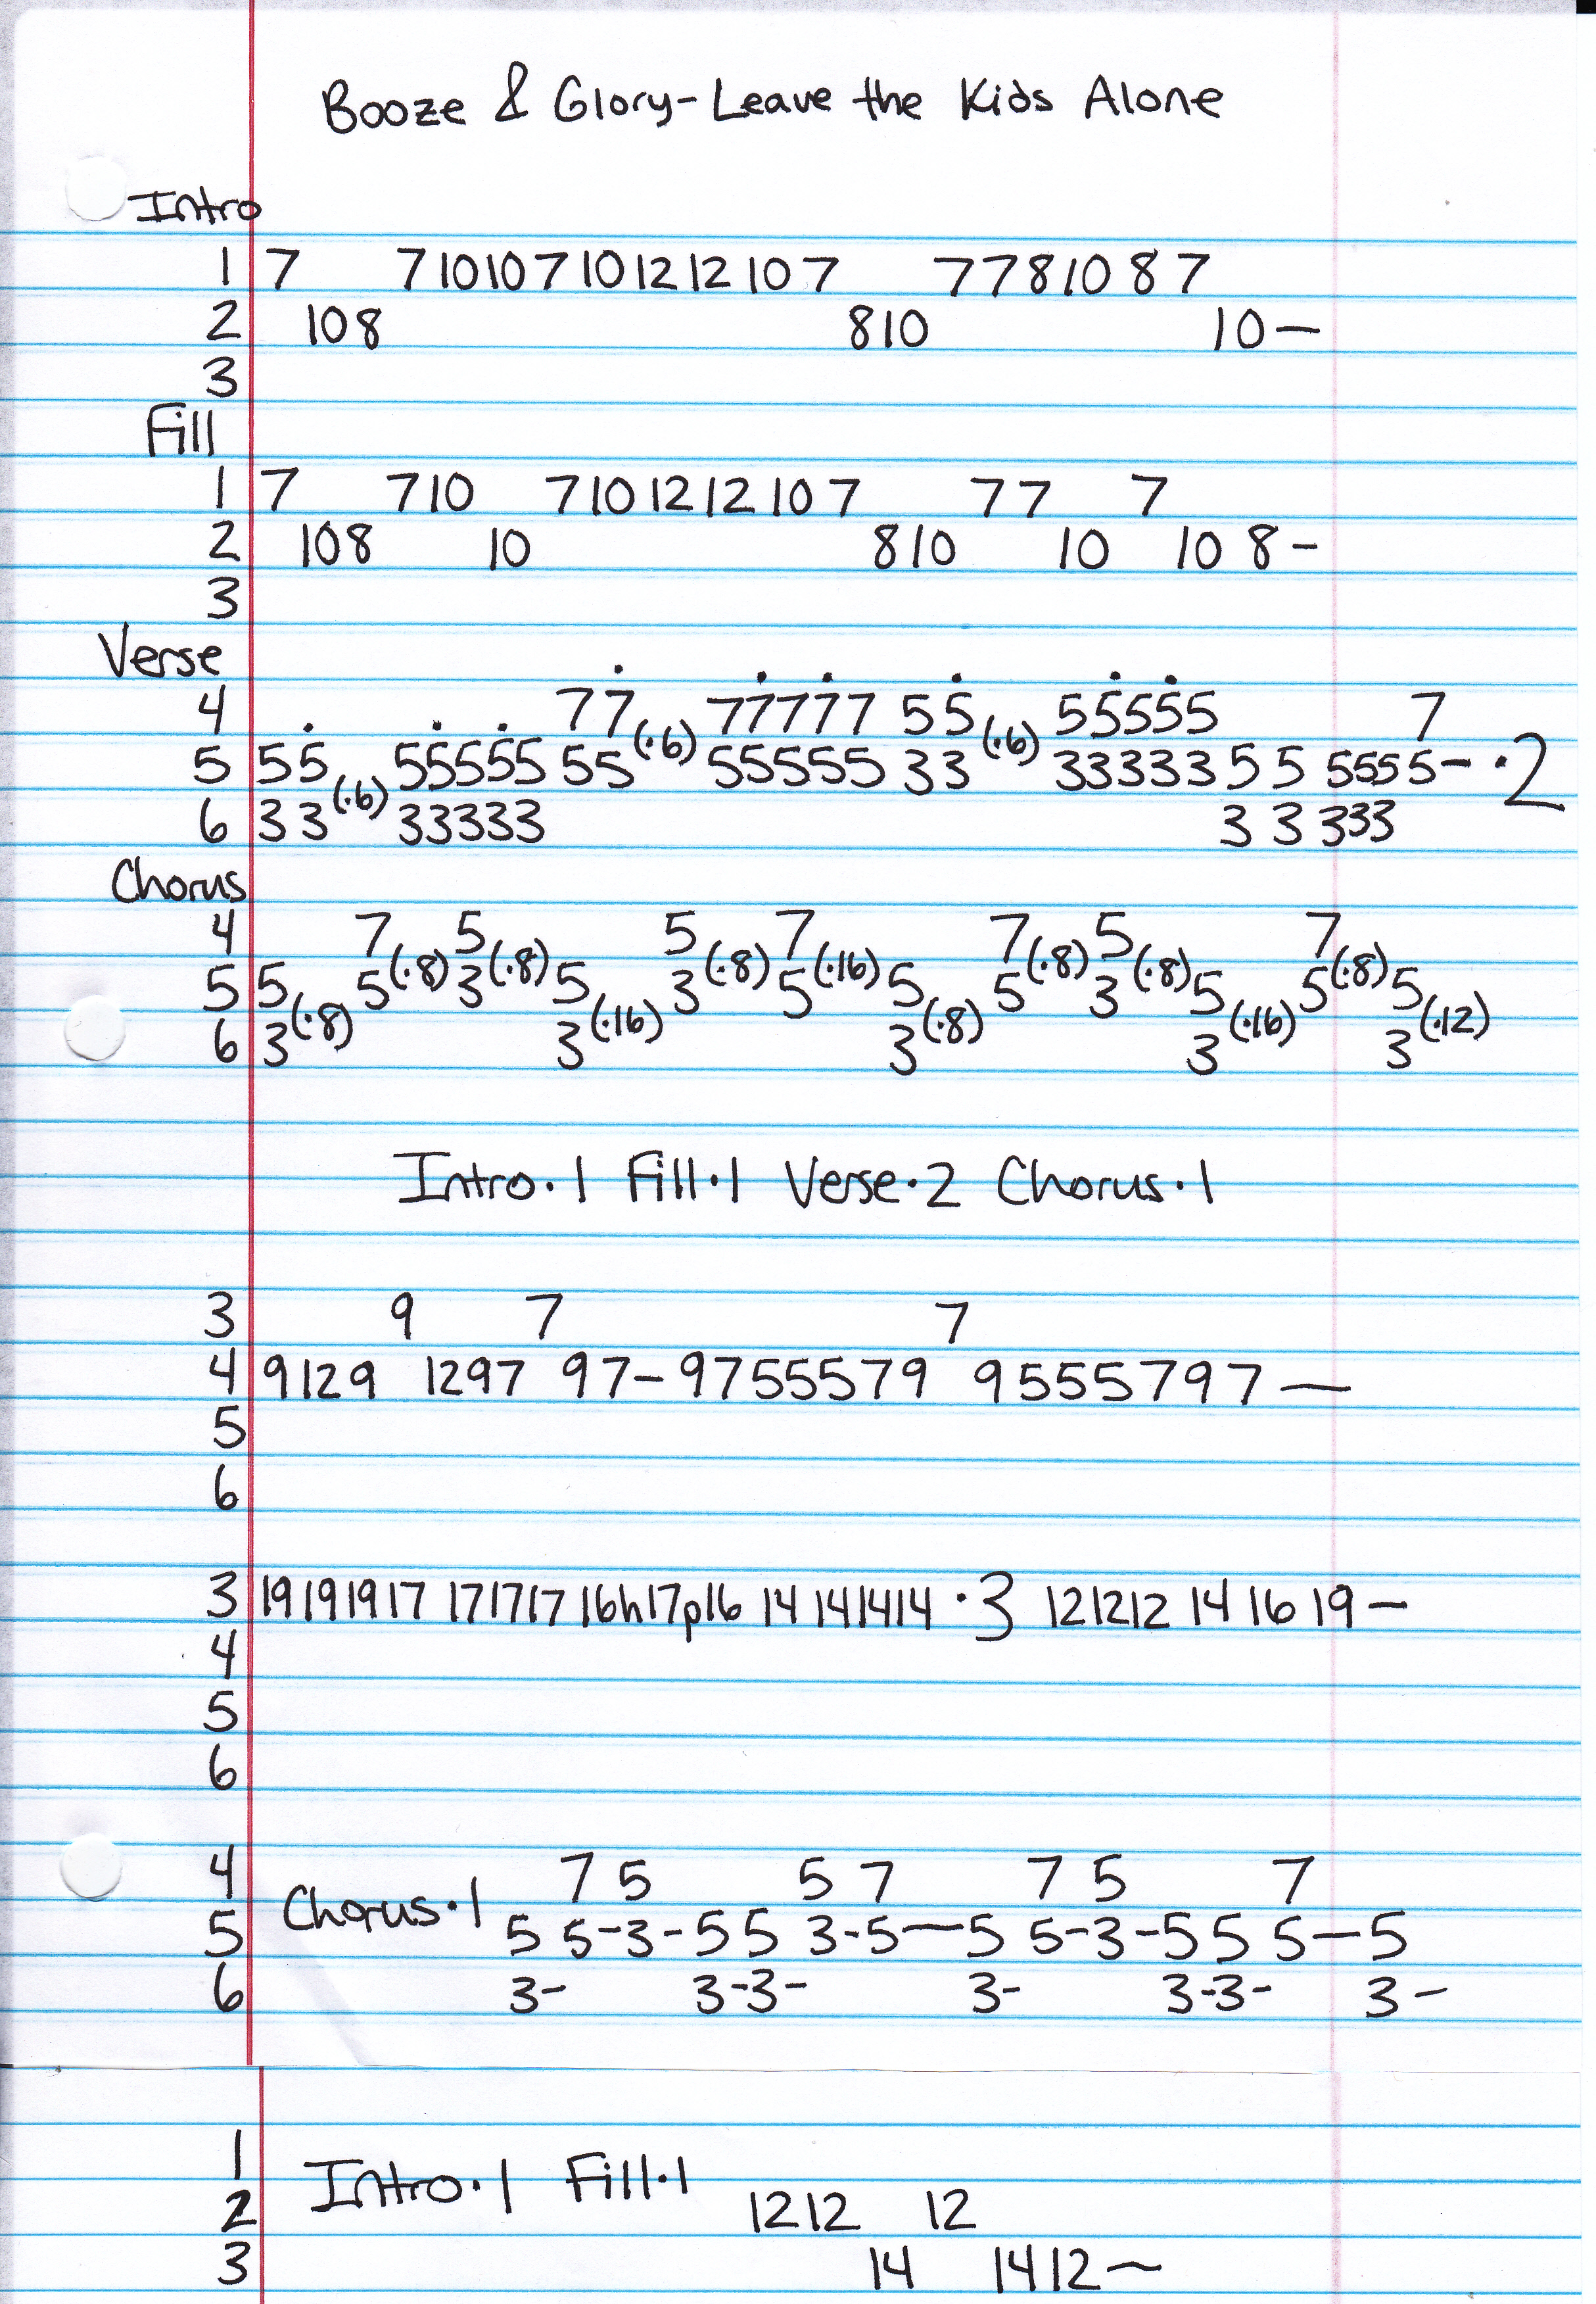 Booze & Glory-Leave the Kids Alone
Intro
1 7 7 10 10 7 10 12 12 10 7 7 7 8 10 8 7
2 10 8 8 10 10—
3
Fill
1 7 7 10 7 10 12 12 10 7 7 7 7
2 10 8 10 8 10 10 10 8-
3
Verse
4 7 7 (·6) 77777 5 5 (·6) 55555 7
5 5 5 (·6) 55555 55 55555 33 33333 5 5 5555- ·2
6 3 3 33333 3 3 333
Chorus
4 7 (·8) 5 (·8) 5 (·8) 7 (·16) 7 (·8) 5 (·8) 7 (·8)
5 5 (·8) 5 3 5 (·16) 3 5 5 (·8) 5 3 5 (·16) 5 5 (·12)
6 3 3 3 3 3
Intro·1 Fill·1 Verse·2 Chorus·1
3 9 7 7
4 9 12 9 12 9 7 9 7- 9 7 5 5 5 7 9 9 5 5 5 7 9 7—
5
6
3 19 19 19 17 17 17 17 16h17p16 14 14 14 14 ·3 12 12 12 14 16 19—
4
5
6
4 7 5 5 7 7 5 7
Chorus·1
5 5 5-3-5 5 3-5—5 5-3-5 5 5—5
6 3- 3-3- 3- 3-3- 3-
1
Intro·1 Fill·1
2 12 12 12
3 14 14 12~